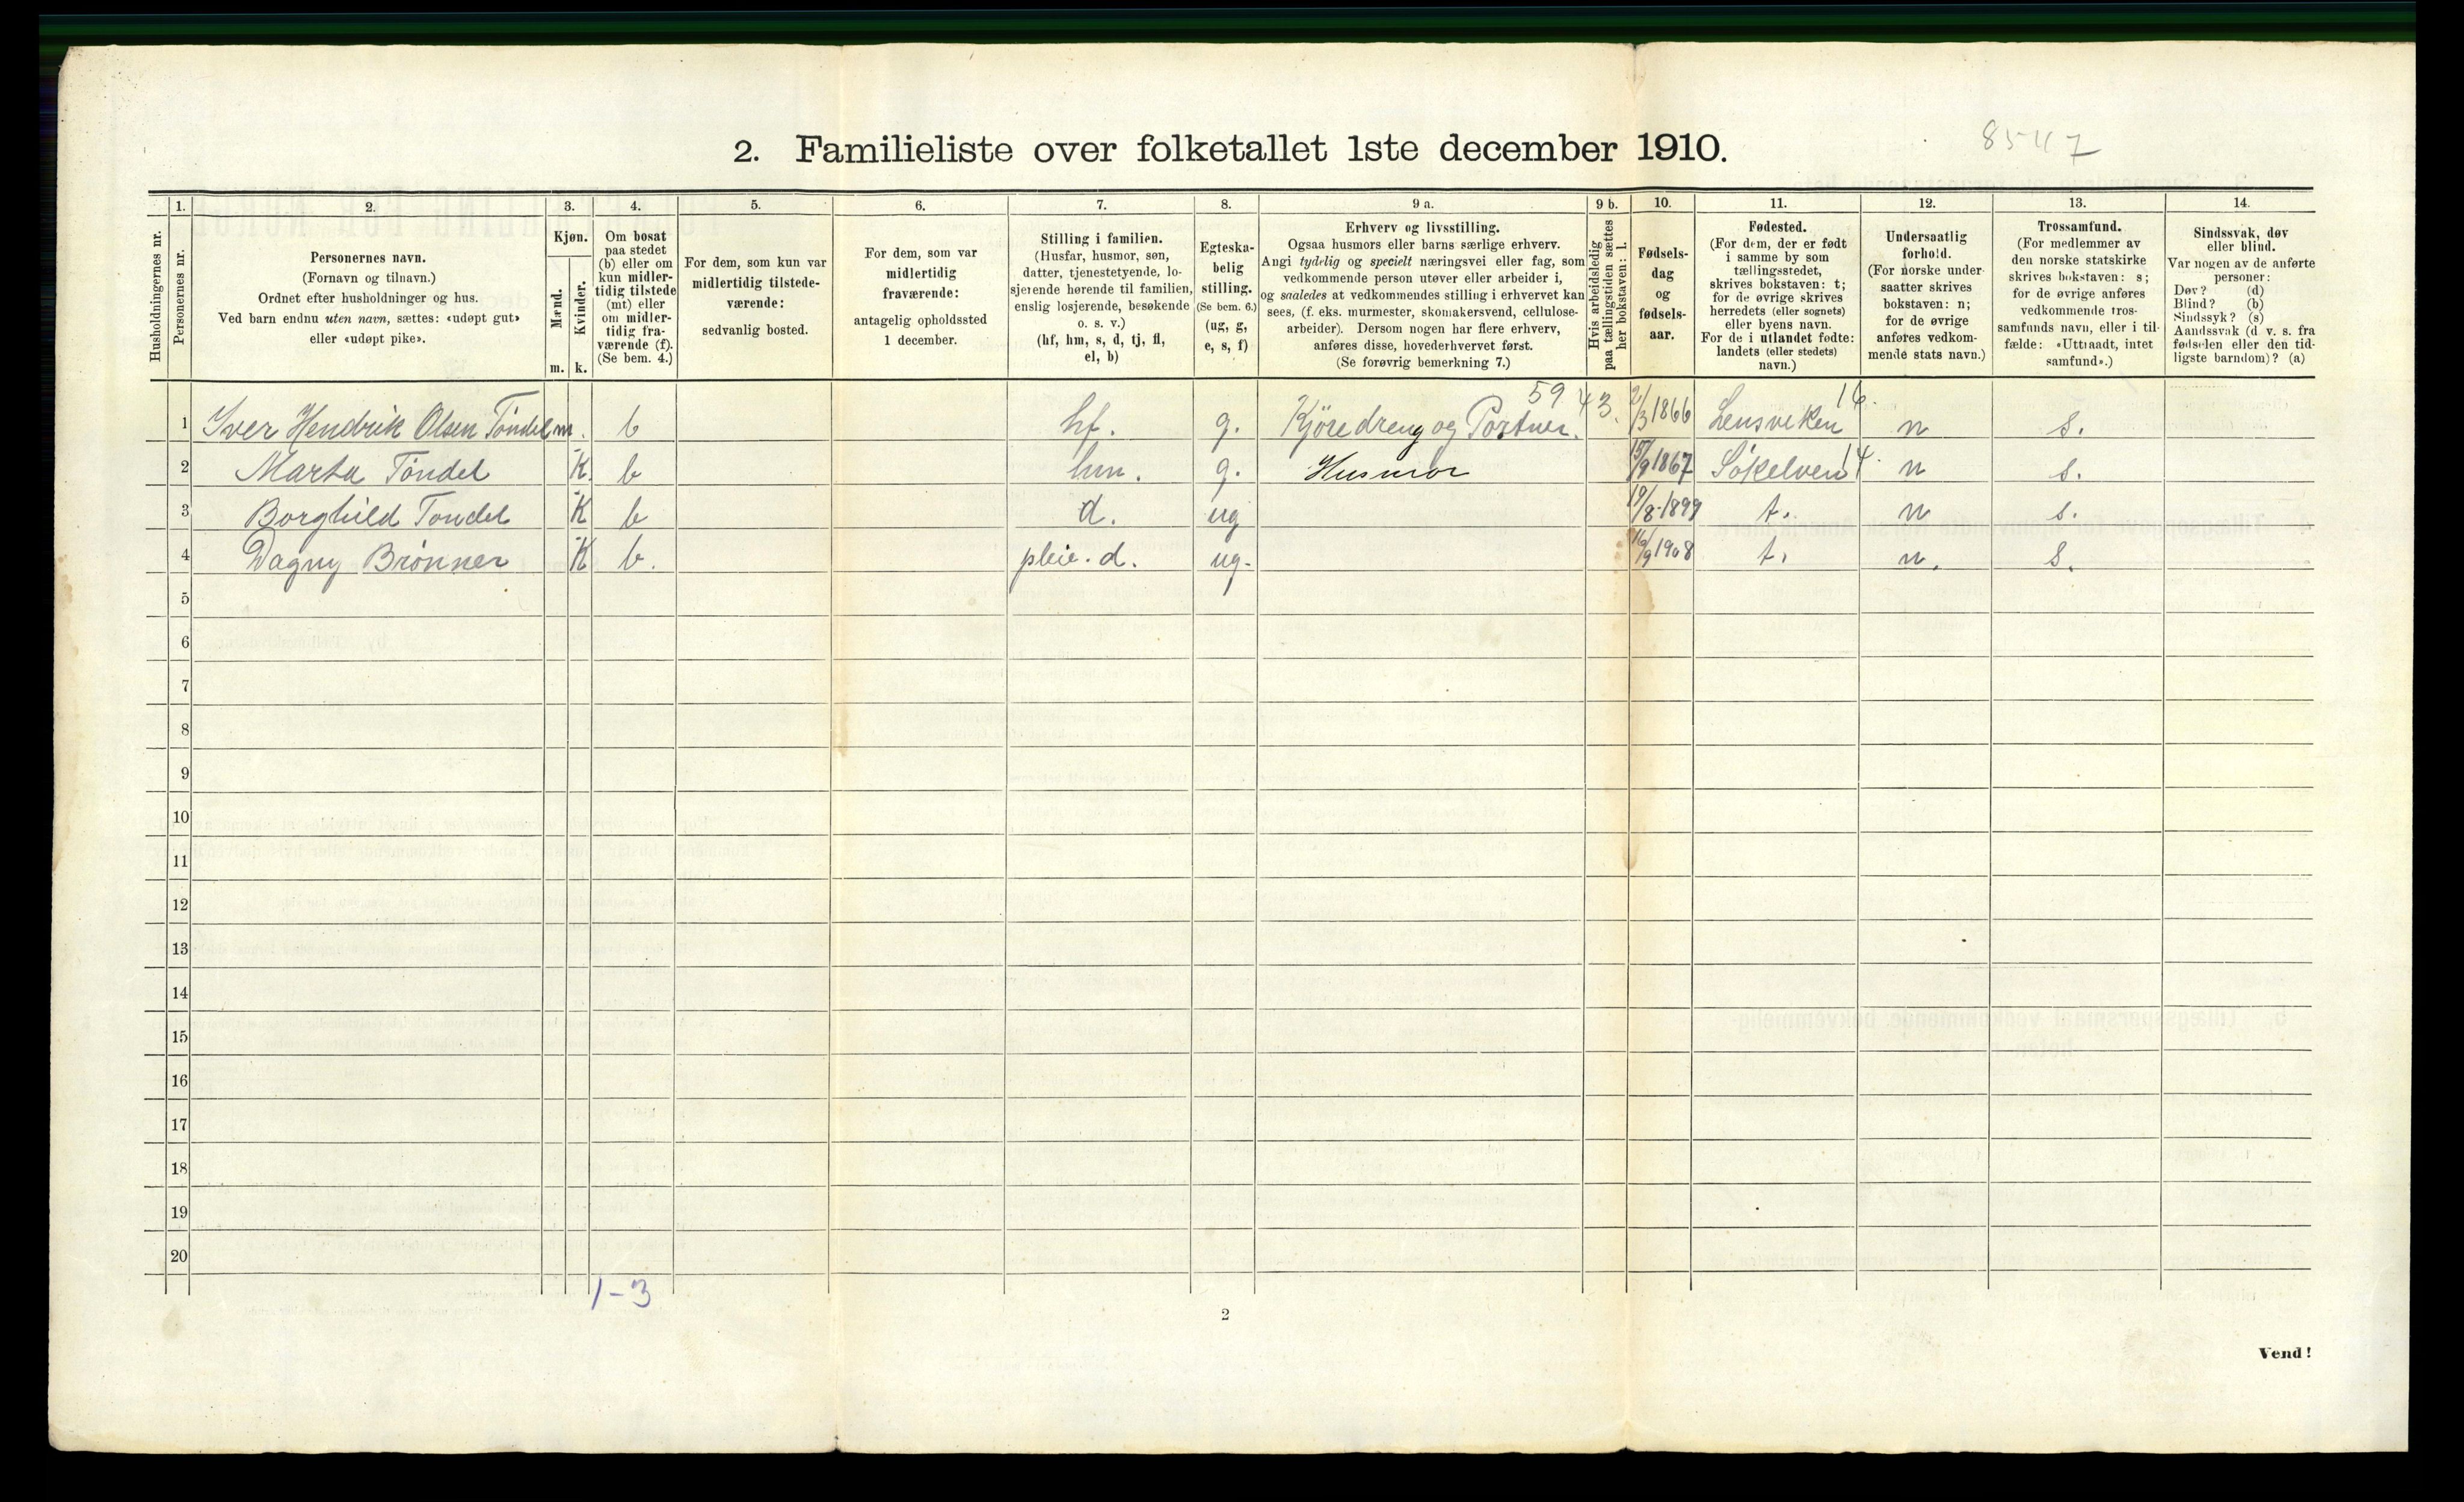 8547
2. Familieliste over folketallet 1ste december 1910.
Husholdningernes nr.
1.
Personernes nr.
2.
Personernes navn.
(Fornavn og tilnavn.)
Ordnet efter husholdninger og hus.
Ved barn endnu uten navn, sættes: «udøpt gut»
eller «udøpt pike».
3.
Kjøn.
Mænd.
Kvinder.
m. k.
4.
Om bosat
paa stedet
(b) eller om
kun midler-
tidig tilstede
(mt) eller
om midler-
tidig fra-
værende (f).
(Se bem. 4.)
5.
For dem, som kun var
midlertidig tilstede-
værende:
sedvanlig bosted.
6.
For dem, som var
midlertidig
fraværende:
antagelig opholdssted
1 december.
7.
Stilling i familien.
(Husfar, husmor, søn,
datter, tjenestetyende, lo-
sjerende hørende til familien,
enslig losjerende, besøkende
o. s. v.)
(hf, hm, s, d, tj, fl,
el, b)
8.
Egteska-
belig
stilling.
(Se bem. 6.)
(ug, g,
e, s, f)
9 a.
Erhverv og livsstilling.
Ogsaa husmors eller barns særlige erhverv.
Angi tydelig og specielt næringsvei eller fag, som
vedkommende person utøver eller arbeider i,
og saaledes at vedkommendes stilling i erhvervet kan
sees, (f. eks. murmester, skomakersvend, cellulose-
arbeider). Dersom nogen har flere erhverv,
anføres disse, hovederhvervet først.
(Se forøvrig bemerkning 7.)
9 b.
Hvis arbeidsledig
paa tællingstiden sættes
her bokstaven: l.
10.
Fødsels-
dag
og
fødsels-
aar.
11.
Fødested.
(For dem, der er født
i samme by som
tællingsstedet,
skrives bokstaven: t;
for de øvrige skrives
herredets (eller sognets)
eller byens navn.
For de i utlandet fødte:
landets (eller stedets)
navn.)
12.
Undersaatlig
forhold.
(For norske under-
saatter skrives
bokstaven: n;
for de øvrige
anføres vedkom-
mende stats navn.)
13.
Trossamfund.
(For medlemmer av
den norske statskirke
skrives bokstaven: s;
for de øvrige anføres
vedkommende tros-
samfunds navn, eller i til-
fælde: «Uttraadt, intet
samfund».)
14.
Sindssvak, døv
eller blind.
Var nogen av de anførte
personer:
Døv? (d)
Blind? (b)
Sindssyk? (s)
Aandssvak (d. v. s. fra
fødselen eller den tid-
ligste barndom)? (a)
59 43. 16.
1 Iver Hendrik Olsen Tøndel m. b hf. g. Kjøredreng og Portner. 2/3 1866 Lensviken n s.
2 Marta Tøndel K. b hm. g. Husmor 15/9 1867 Søkelven 14. n s.
3 Borghild Tøndel K b d. ug 19/8-1899 t. n s.
4 Dagny Brønner K b. pleie.d. ug. 16/9 1908 t. n. s.
5
6
7
8
9
10
11
12
13
14
15
16
17
18
19
20
1-3
2
Vend!